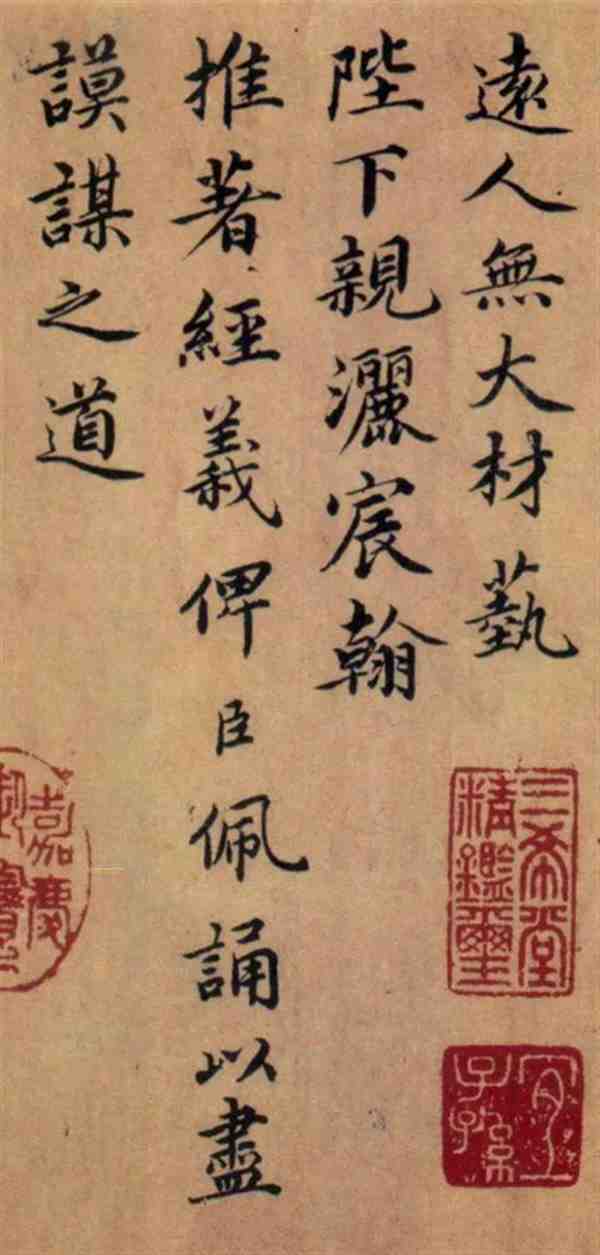 遠人無大材藝
陛下親灑宸翰
推著經義俾臣佩誦以盡
謨謀之道
三希堂精鑑璽
宜子孫
嘉慶